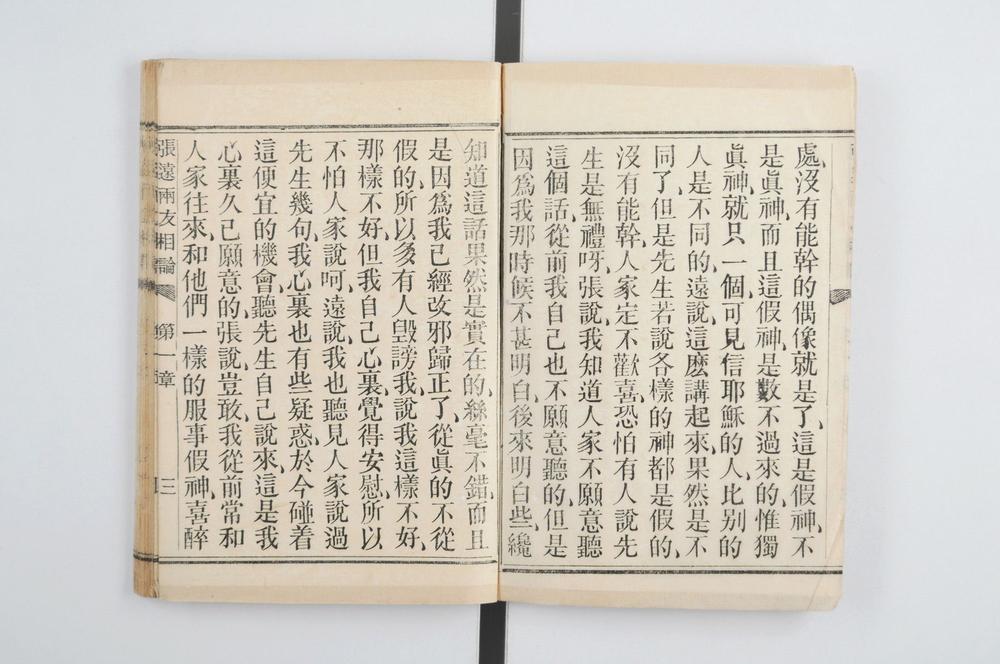 處、沒有能幹的偶像就是了、這是假神、不
是眞神、而且這假神、是數不過來的、惟獨
眞神、就只一個、可見信耶穌的人、比别的
人是不同的、遠說、這麽講起來、果然是不
同了、但是先生若說各樣的神都是假的、
沒有能幹、人家定不歡喜、恐怕有人說先
生是無禮呀、張說、我知道人家不願意聽
這個話、從前我自己也不願意聽的、但是
因爲我那時候、不甚明白、後來明白些、纔
知道這話果然是實在的、絲毫不錯、而且
是因爲我已經改邪歸正了、從眞的不從
假的、所以多有人毀謗我、說我這樣不好、
那樣不好、但我自己心裏、覺得安慰、所以
不怕人家說呵、遠說、我也聽見人家說過
先生幾句、我心裏也有些疑惑、於今碰着
這便宜的機會、聽先生自己說來、這是我
心裏久已願意的、張說、豈敢、我從前常和
人家往來、和他們一樣的服事假神、喜醉
張遠兩友相論 第一章 三